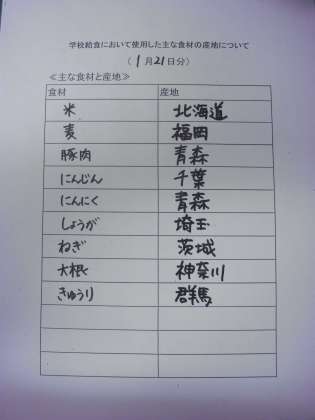 学校給食において使用した主な食材の産地について
（1月21日分）
≪主な食材と産地≫
食材 産地
米 北海道
麦 福岡
豚肉 青森
にんじん 千葉
にんにく 青森
しょうが 埼玉
ねぎ 茨城
大根 神奈川
きゅうり 群馬